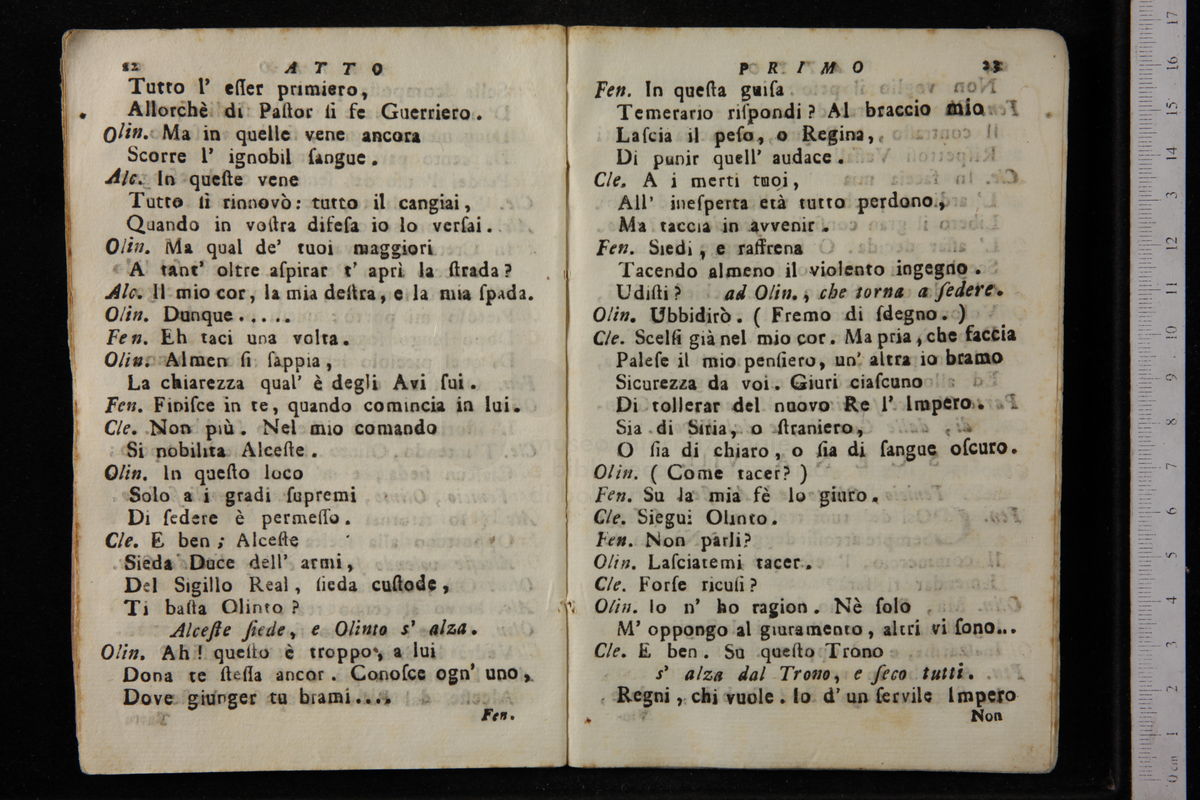 22 ATTO
Tutto l' eſſer primiero,
Allorchè di Paſtor ſi fe Guerriero.
Olin. Ma in quelle vene ancora
Scorre l' ignobil ſangue.
Alc. In queſte vene
Tutto ſi rinnovò: tutto il cangiai,
Quando in voſtra difeſa io lo verſai.
Olin. Ma qual de' tuoi maggiori
A tant' oltre aſpirar t' aprì la ſtrada?
Alc. Il mio cor, la mia deſtra, e la mia ſpada.
Olin. Dunque.....
Fen. Eh taci una volta.
Olin. Almen ſi ſappia,
La chiarezza qual' è degli Avi ſui.
Fen. Finiſce in te, quando comincia in lui.
Cle. Non più. Nel mio comando
Si nobilita Alceſte.
Olin. In queſto loco
Solo a i gradi ſupremi
Di ſedere è permeſſo.
Cle. E ben; Alceſte
Sieda Duce dell' armi,
Del Sigillo Real, ſieda cuſtode,
Ti baſta Olinto?
Alceſte ſiede, e Olinto s' alza.
Olin. Ah! queſto è troppo, a lui
Dona te ſteſſa ancor. Conoſce ogn' uno,
Dove giunger tu brami....
Fen.
PRIMO 23
Fen. In queſta guiſa
Temerario riſpondi? Al braccio mio
Laſcia il peſo, o Regina,
Di punir quell' audace.
Cle. A i merti tuoi,
All' ineſperta età tutto perdono,
Ma taccia in avvenir.
Fen. Siedi, e raffrena
Tacendo almeno il violento ingegno.
Udiſti? ad Olin., che torna a ſedere.
Olin. Ubbidirò. ( Fremo di ſdegno. )
Cle. Scelſi già nel mio cor. Ma pria, che faccia
Paleſe il mio penſiero, un' altra io bramo
Sicurezza da voi. Giuri ciaſcuno
Di tollerar del nuovo Re l' Impero.
Sia di Siria, o ſtraniero,
O ſia di chiaro, o ſia di ſangue oſcuro.
Olin. ( Come tacer? )
Fen. Su la mia fè lo giuro.
Cle. Siegui Olinto.
Fen. Non parli?
Olin. Laſciatemi tacer.
Cle. Forſe ricuſi?
Olin. Io n' ho ragion. Nè ſolo
M' oppongo al giuramento, altri vi ſono...
Cle. E ben. Su queſto Trono
s' alza dal Trono, e ſeco tutti.
Regni, chi vuole. Io d' un ſervile Impero
Non